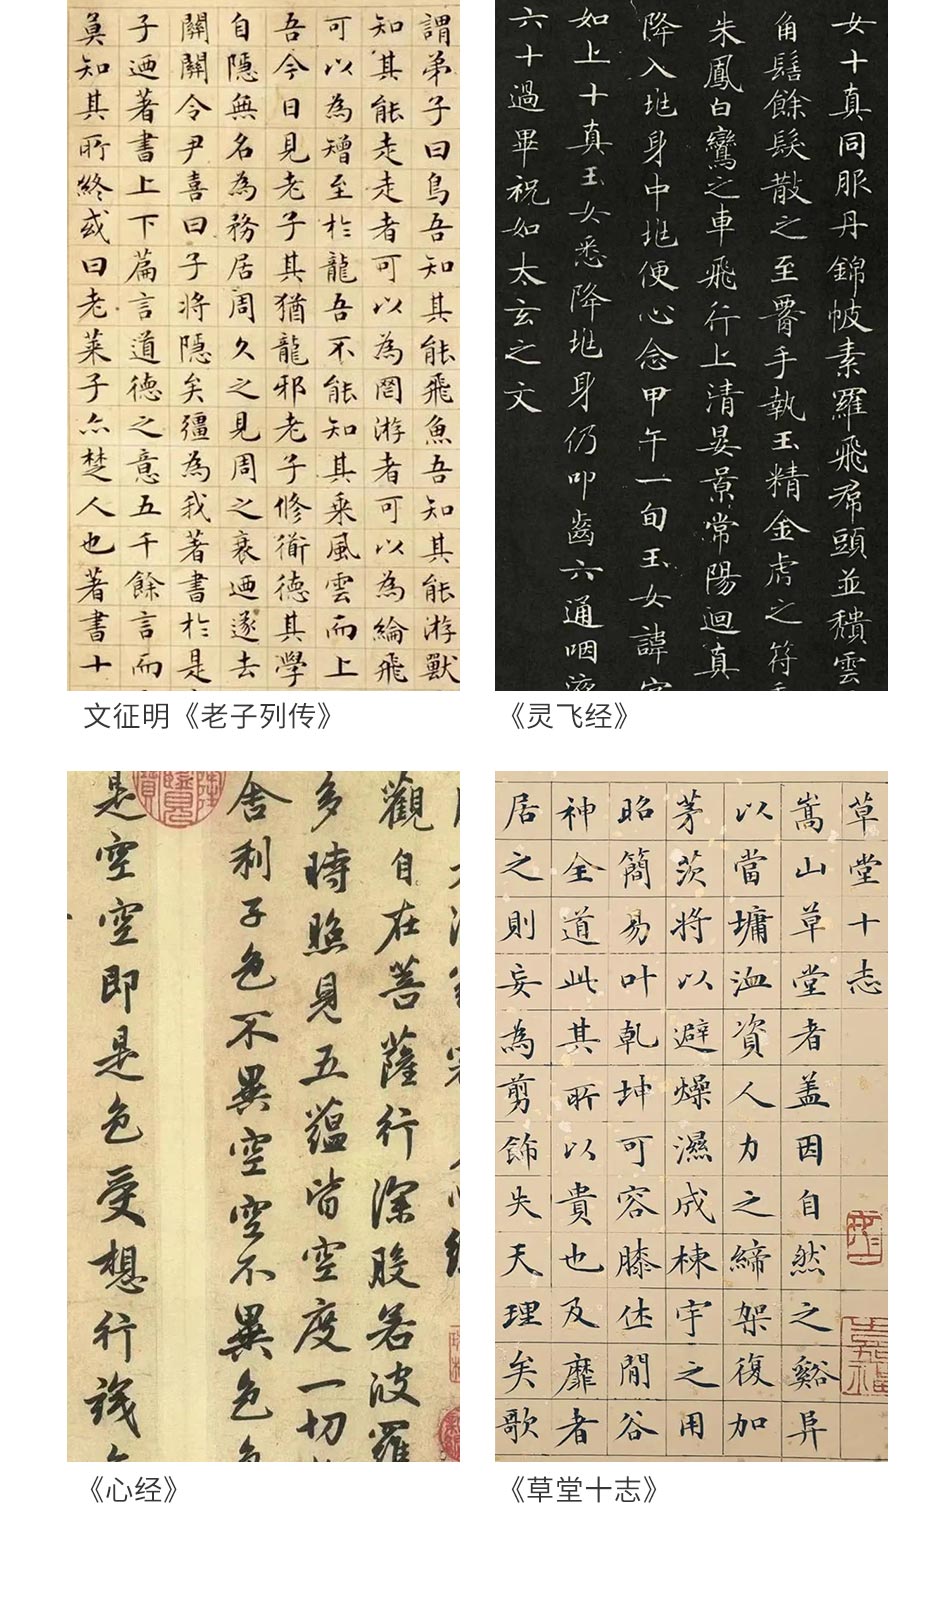 謂弟子曰鳥吾知其能飛魚吾知其能游獸
知其能走走者可以為罔游者可以為綸飛
可以為矰至於龍吾不能知其乘風雲而上
吾今日見老子其猶龍邪老子修衜德其學
自隱無名為務居周久之見周之衰迺遂去
關關令尹喜曰子將隱矣彊為我著書於是
子迺著書上下篇言道德之意五千餘言而
莫知其所終或曰老萊子亦楚人也著書十
文征明《老子列传》
女十真同服丹錦帔素羅飛帬頭並穨雲
角鬄餘髮散之至署手執玉精金虎之符
朱鳳白鸞之車飛行上清晏景常陽迴真
降入地身中地便心念甲午一旬玉女諱字
如上十真玉女悉降地身仍叩齒六通咽液
六十過畢祝如太玄之文
《灵飞经》
觀自在菩薩行深般若波羅
多時照見五蘊皆空度一切
舍利子色不異空空不異色
是空空即是色受想行識
《心经》
草堂十志
嵩山草堂者盖因自然之谿阜
以當墉洫資人力之締架復加
茅茨將以避燥濕成棟宇之用
昭簡易叶乾坤可容膝休閒谷
神全道此其所以貴也及靡者
居之則妄為剪飾失天理矣歌
《草堂十志》